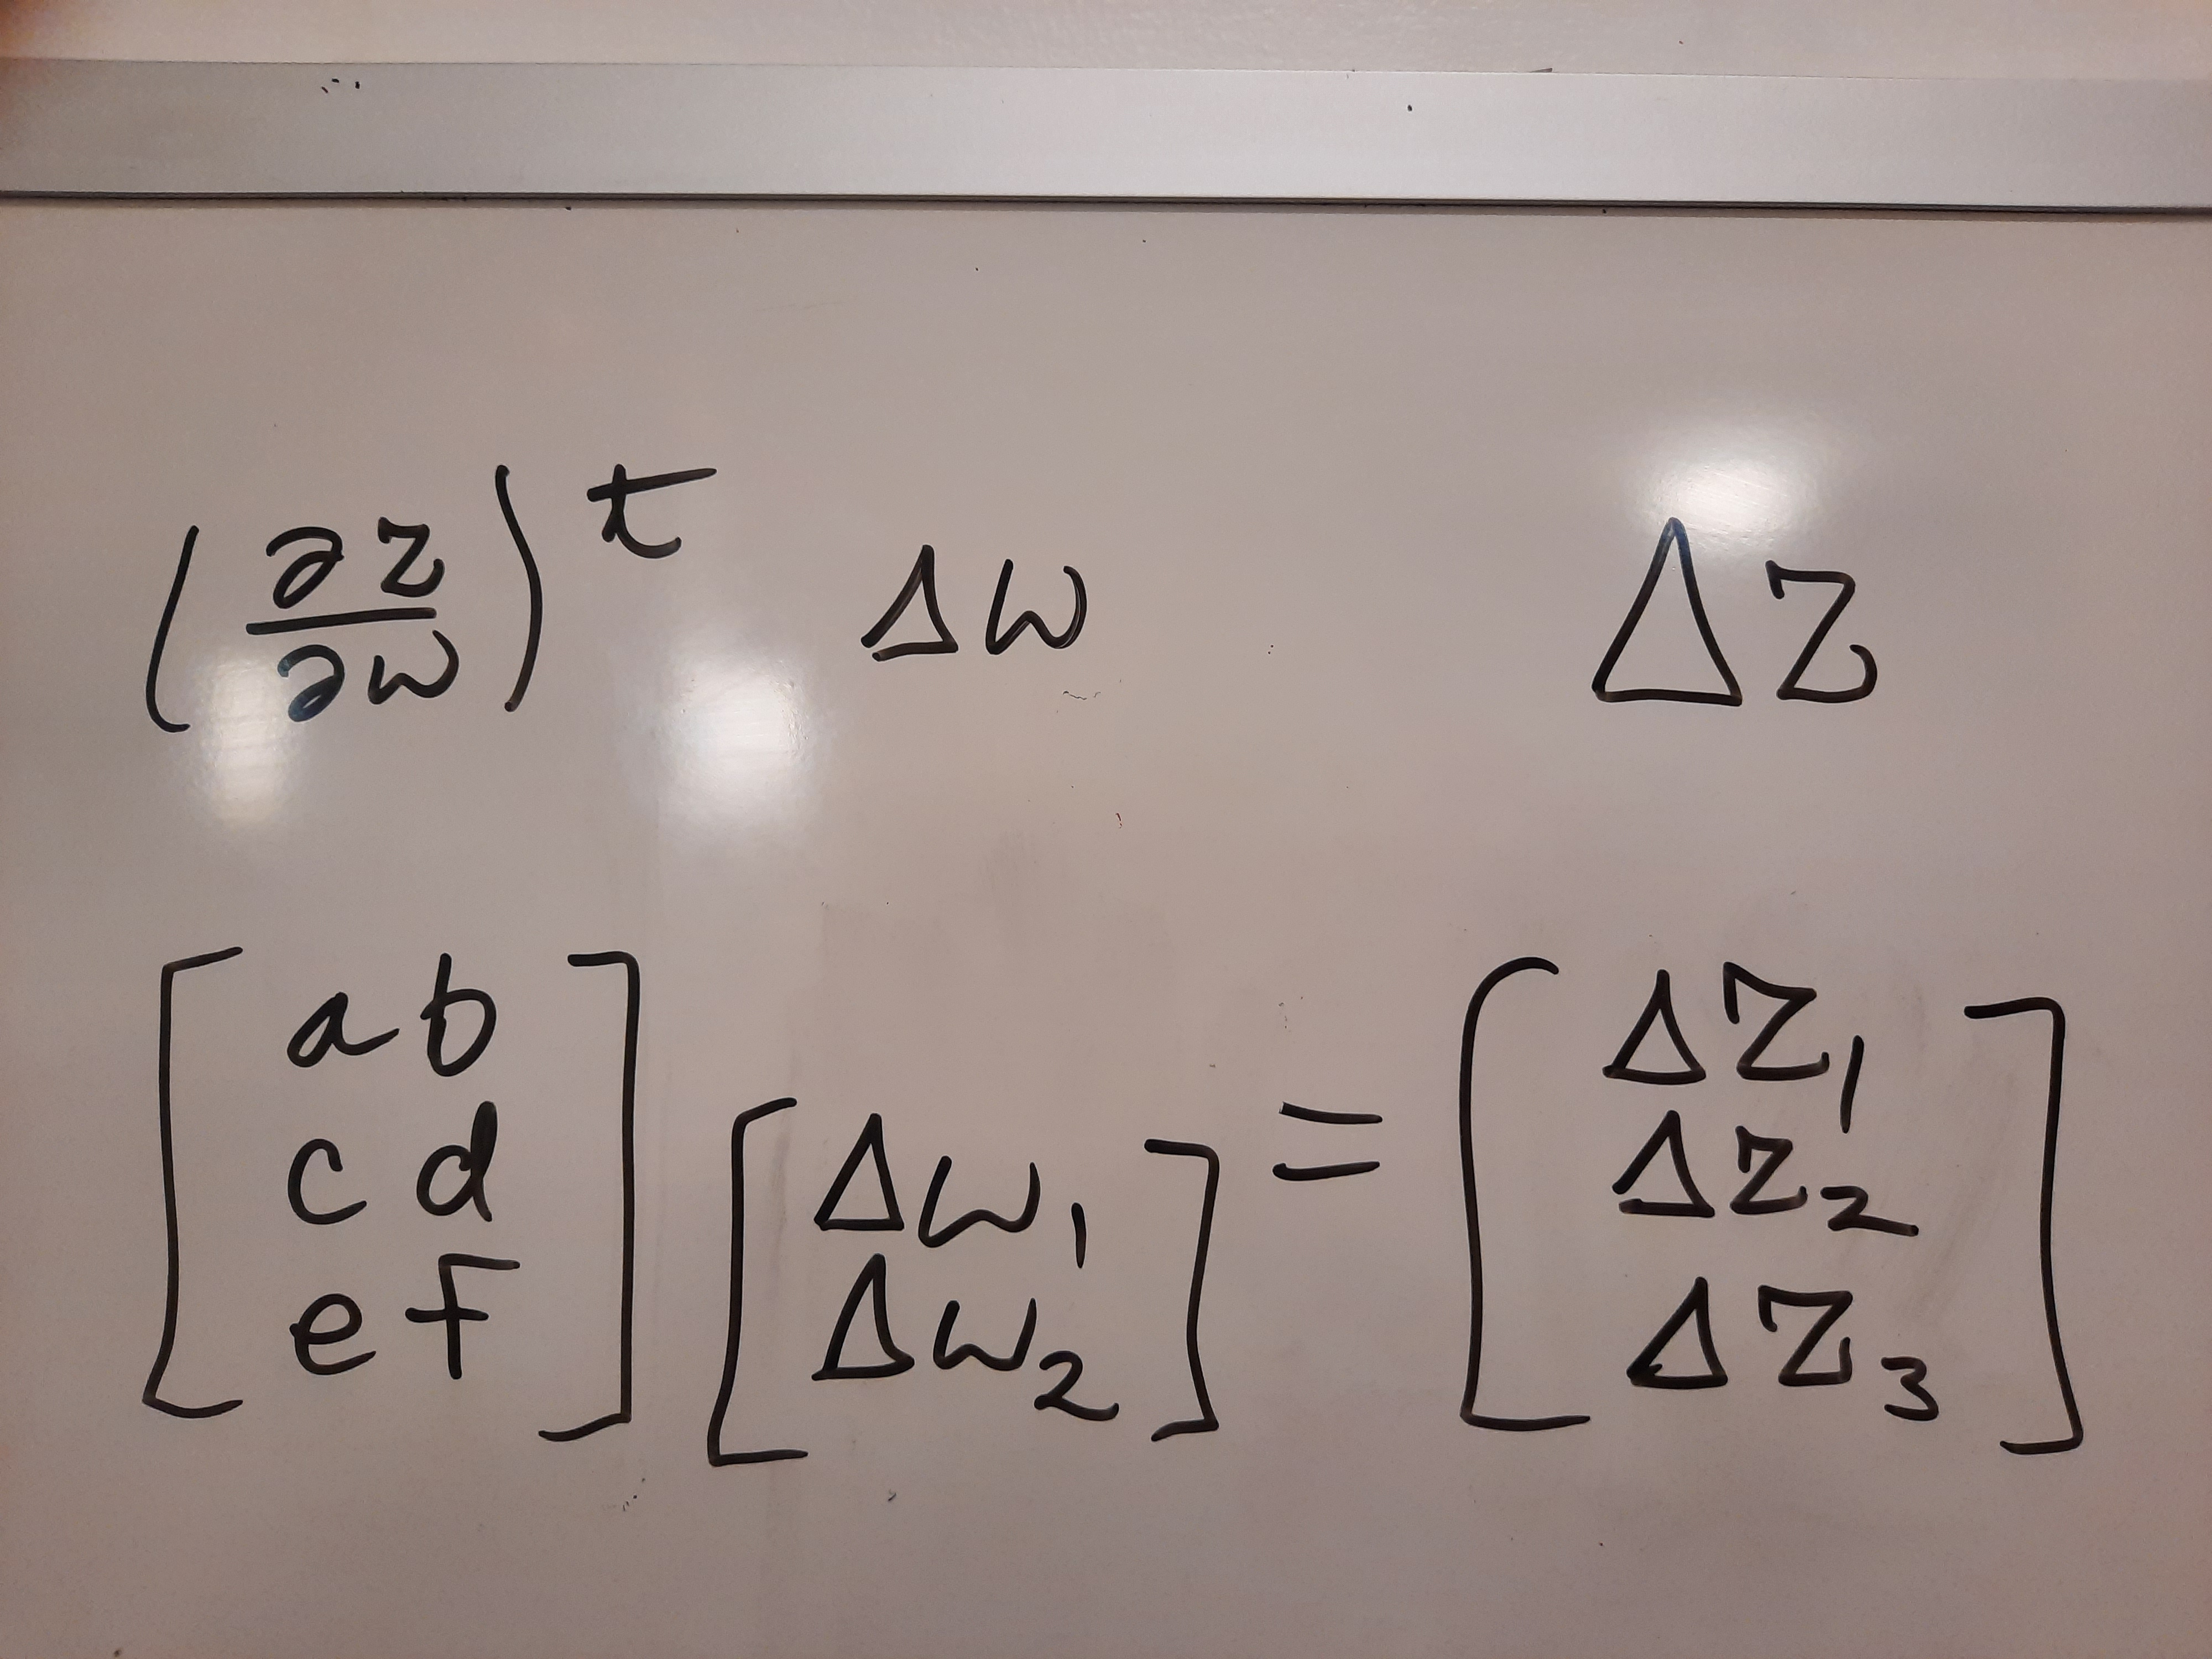 (∂z/∂w)^t Δw ΔZ
[a b; c d; e f] [Δw₁; Δw₂] = [ΔZ₁; ΔZ₂; ΔZ₃]